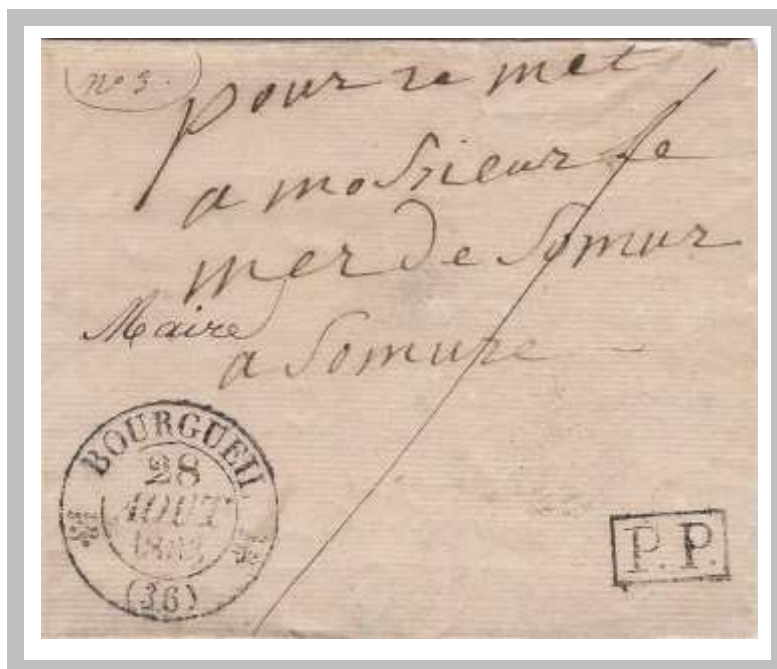 no 3.
pour re met
a mosieur le
mer de Somur
Maire
a Somure
BOURGUEIL
28
AOUT
(36)
P.P.